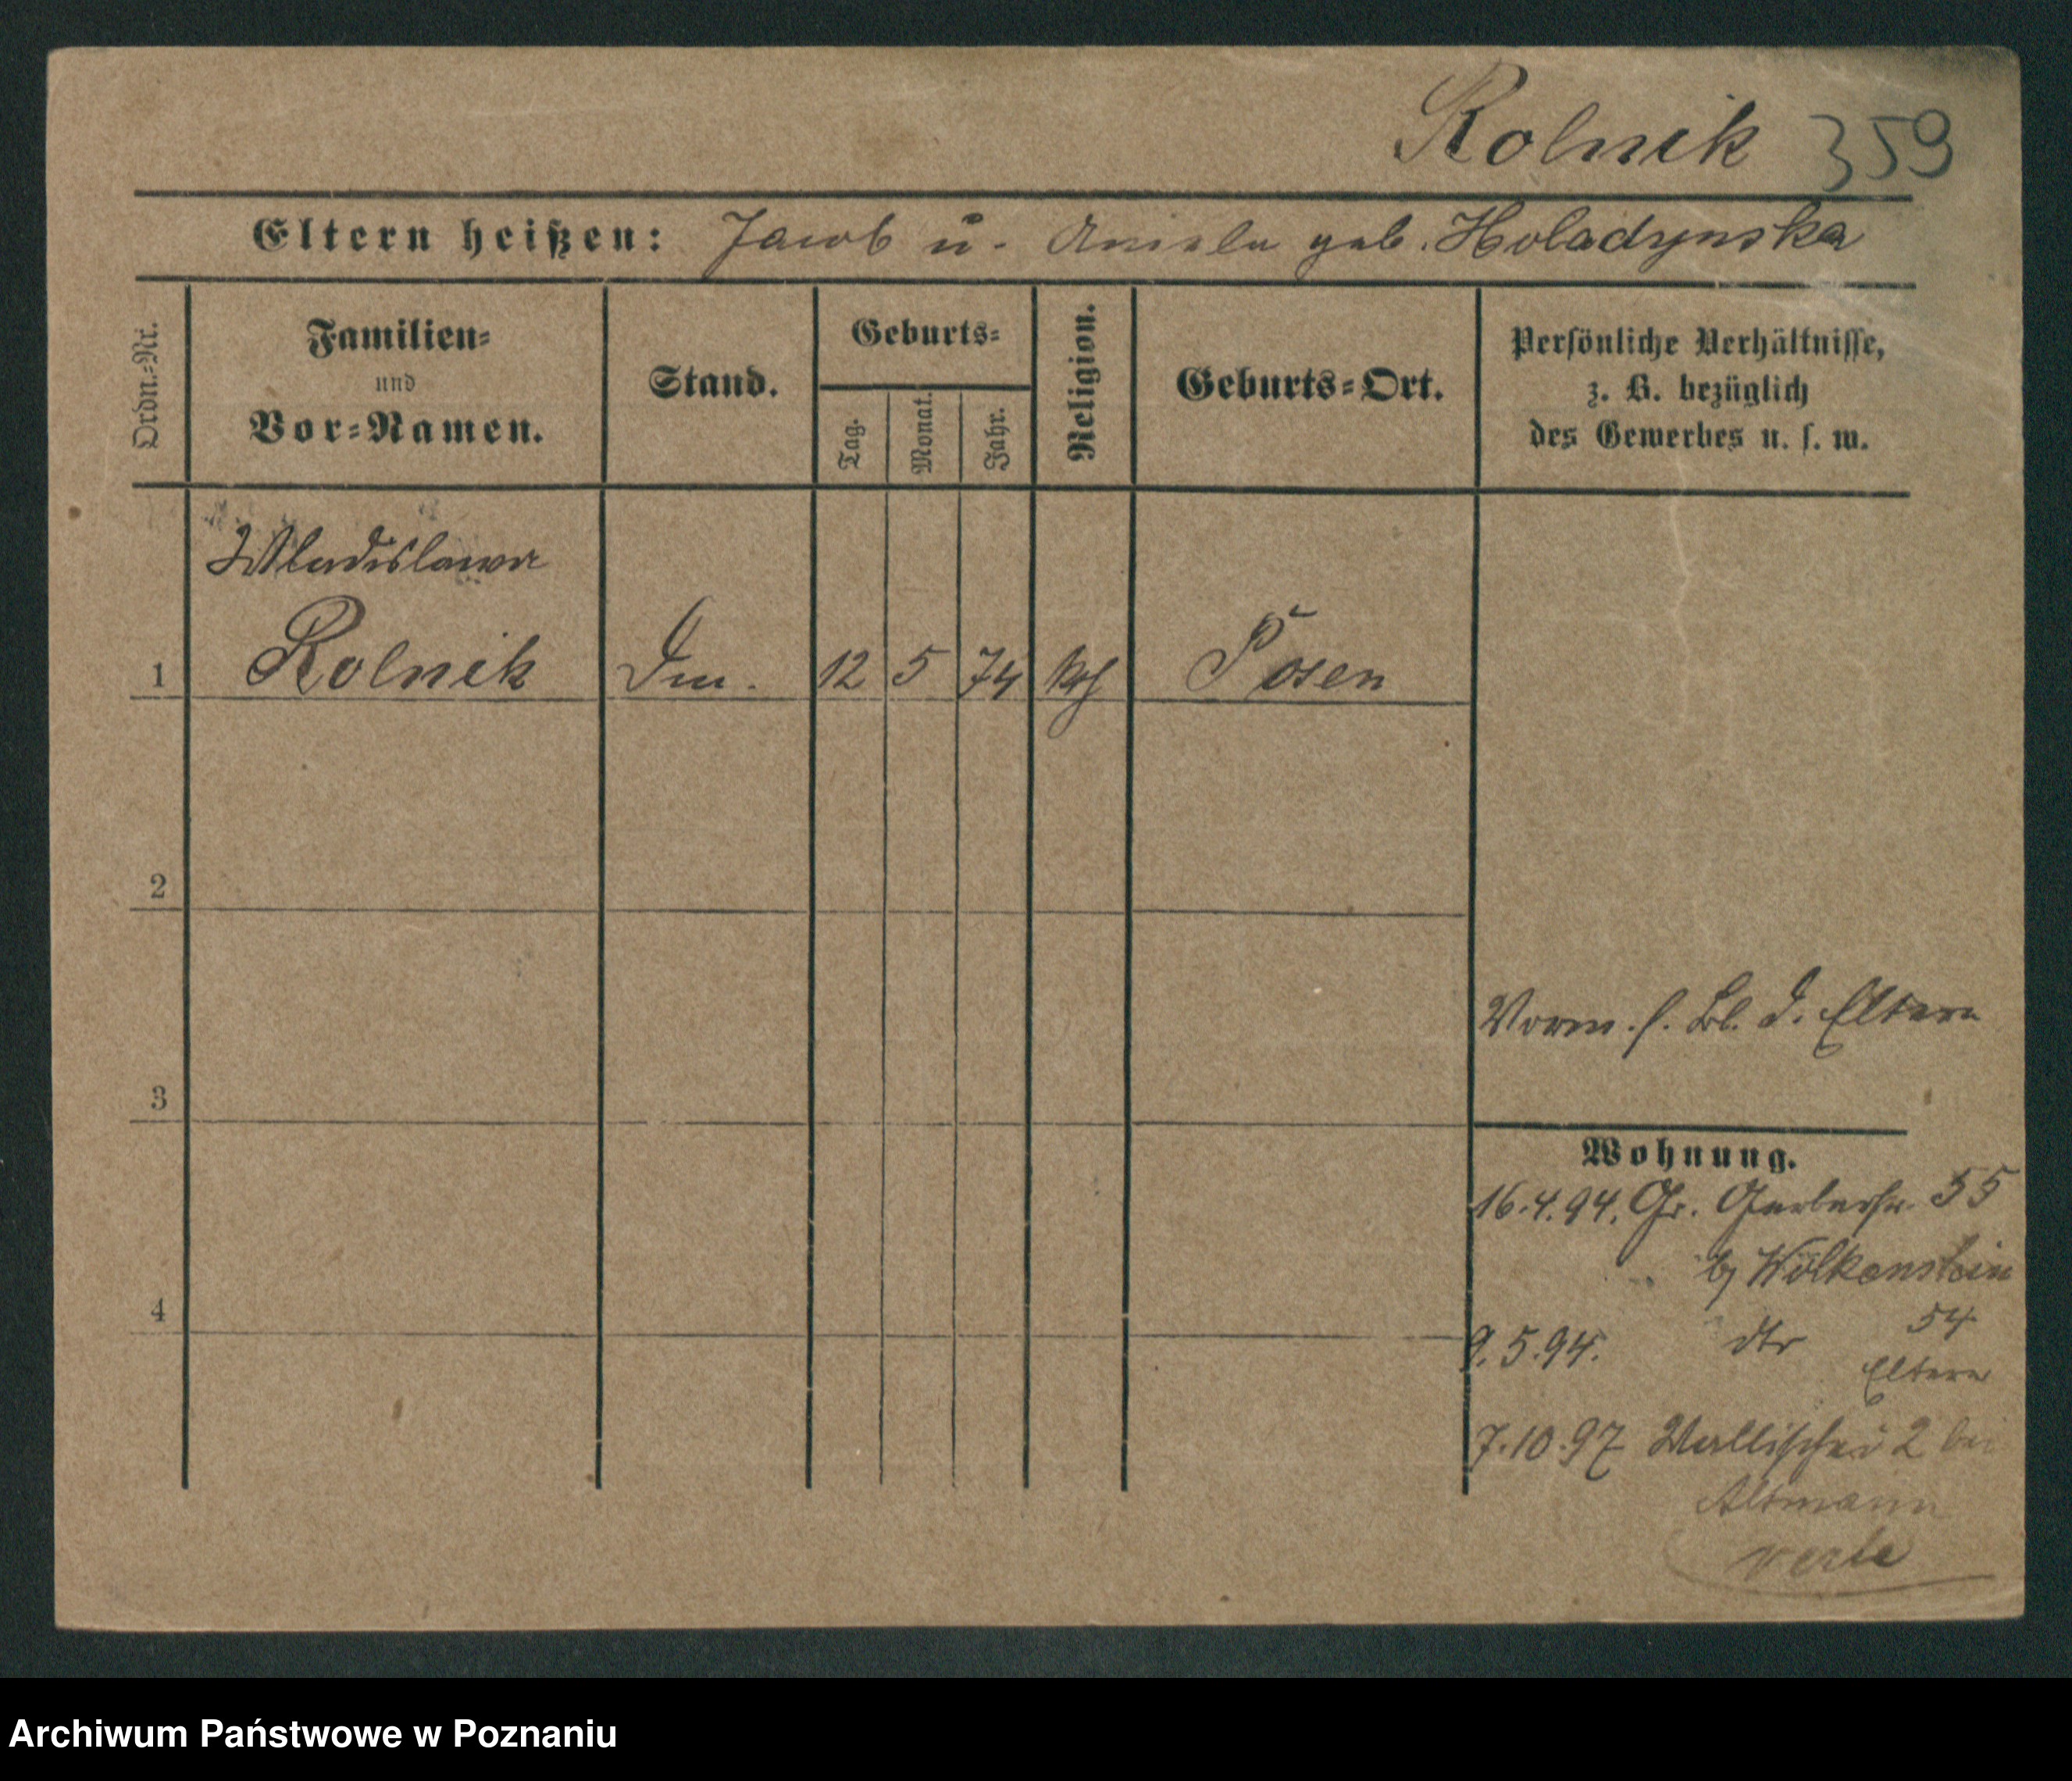 Rolnik 359
Eltern heißen: Jacob u. Aniela geb. Holadynska
Ordn.-Nr.
Familien-
und
Vor-Namen.
Stand.
Geburts-
Tag.
Monat.
Jahr.
Religion.
Geburts-Ort.
Persönliche Verhältnisse,
z. B. bezüglich
des Gewerbes u. s. w.
Wladislawa
1 Rolnik 12 5 74 kth Posen
2
3
4
Vorm. s. Bl. d. Eltern
Wohnung.
16.4.94. Gr. Gerberstr. 55
b/ Wölkenstein
9.5.94. dto 54
Eltern
7.10.97 Wallischei 2 bei
Altmann
Archiwum Państwowe w Poznaniu